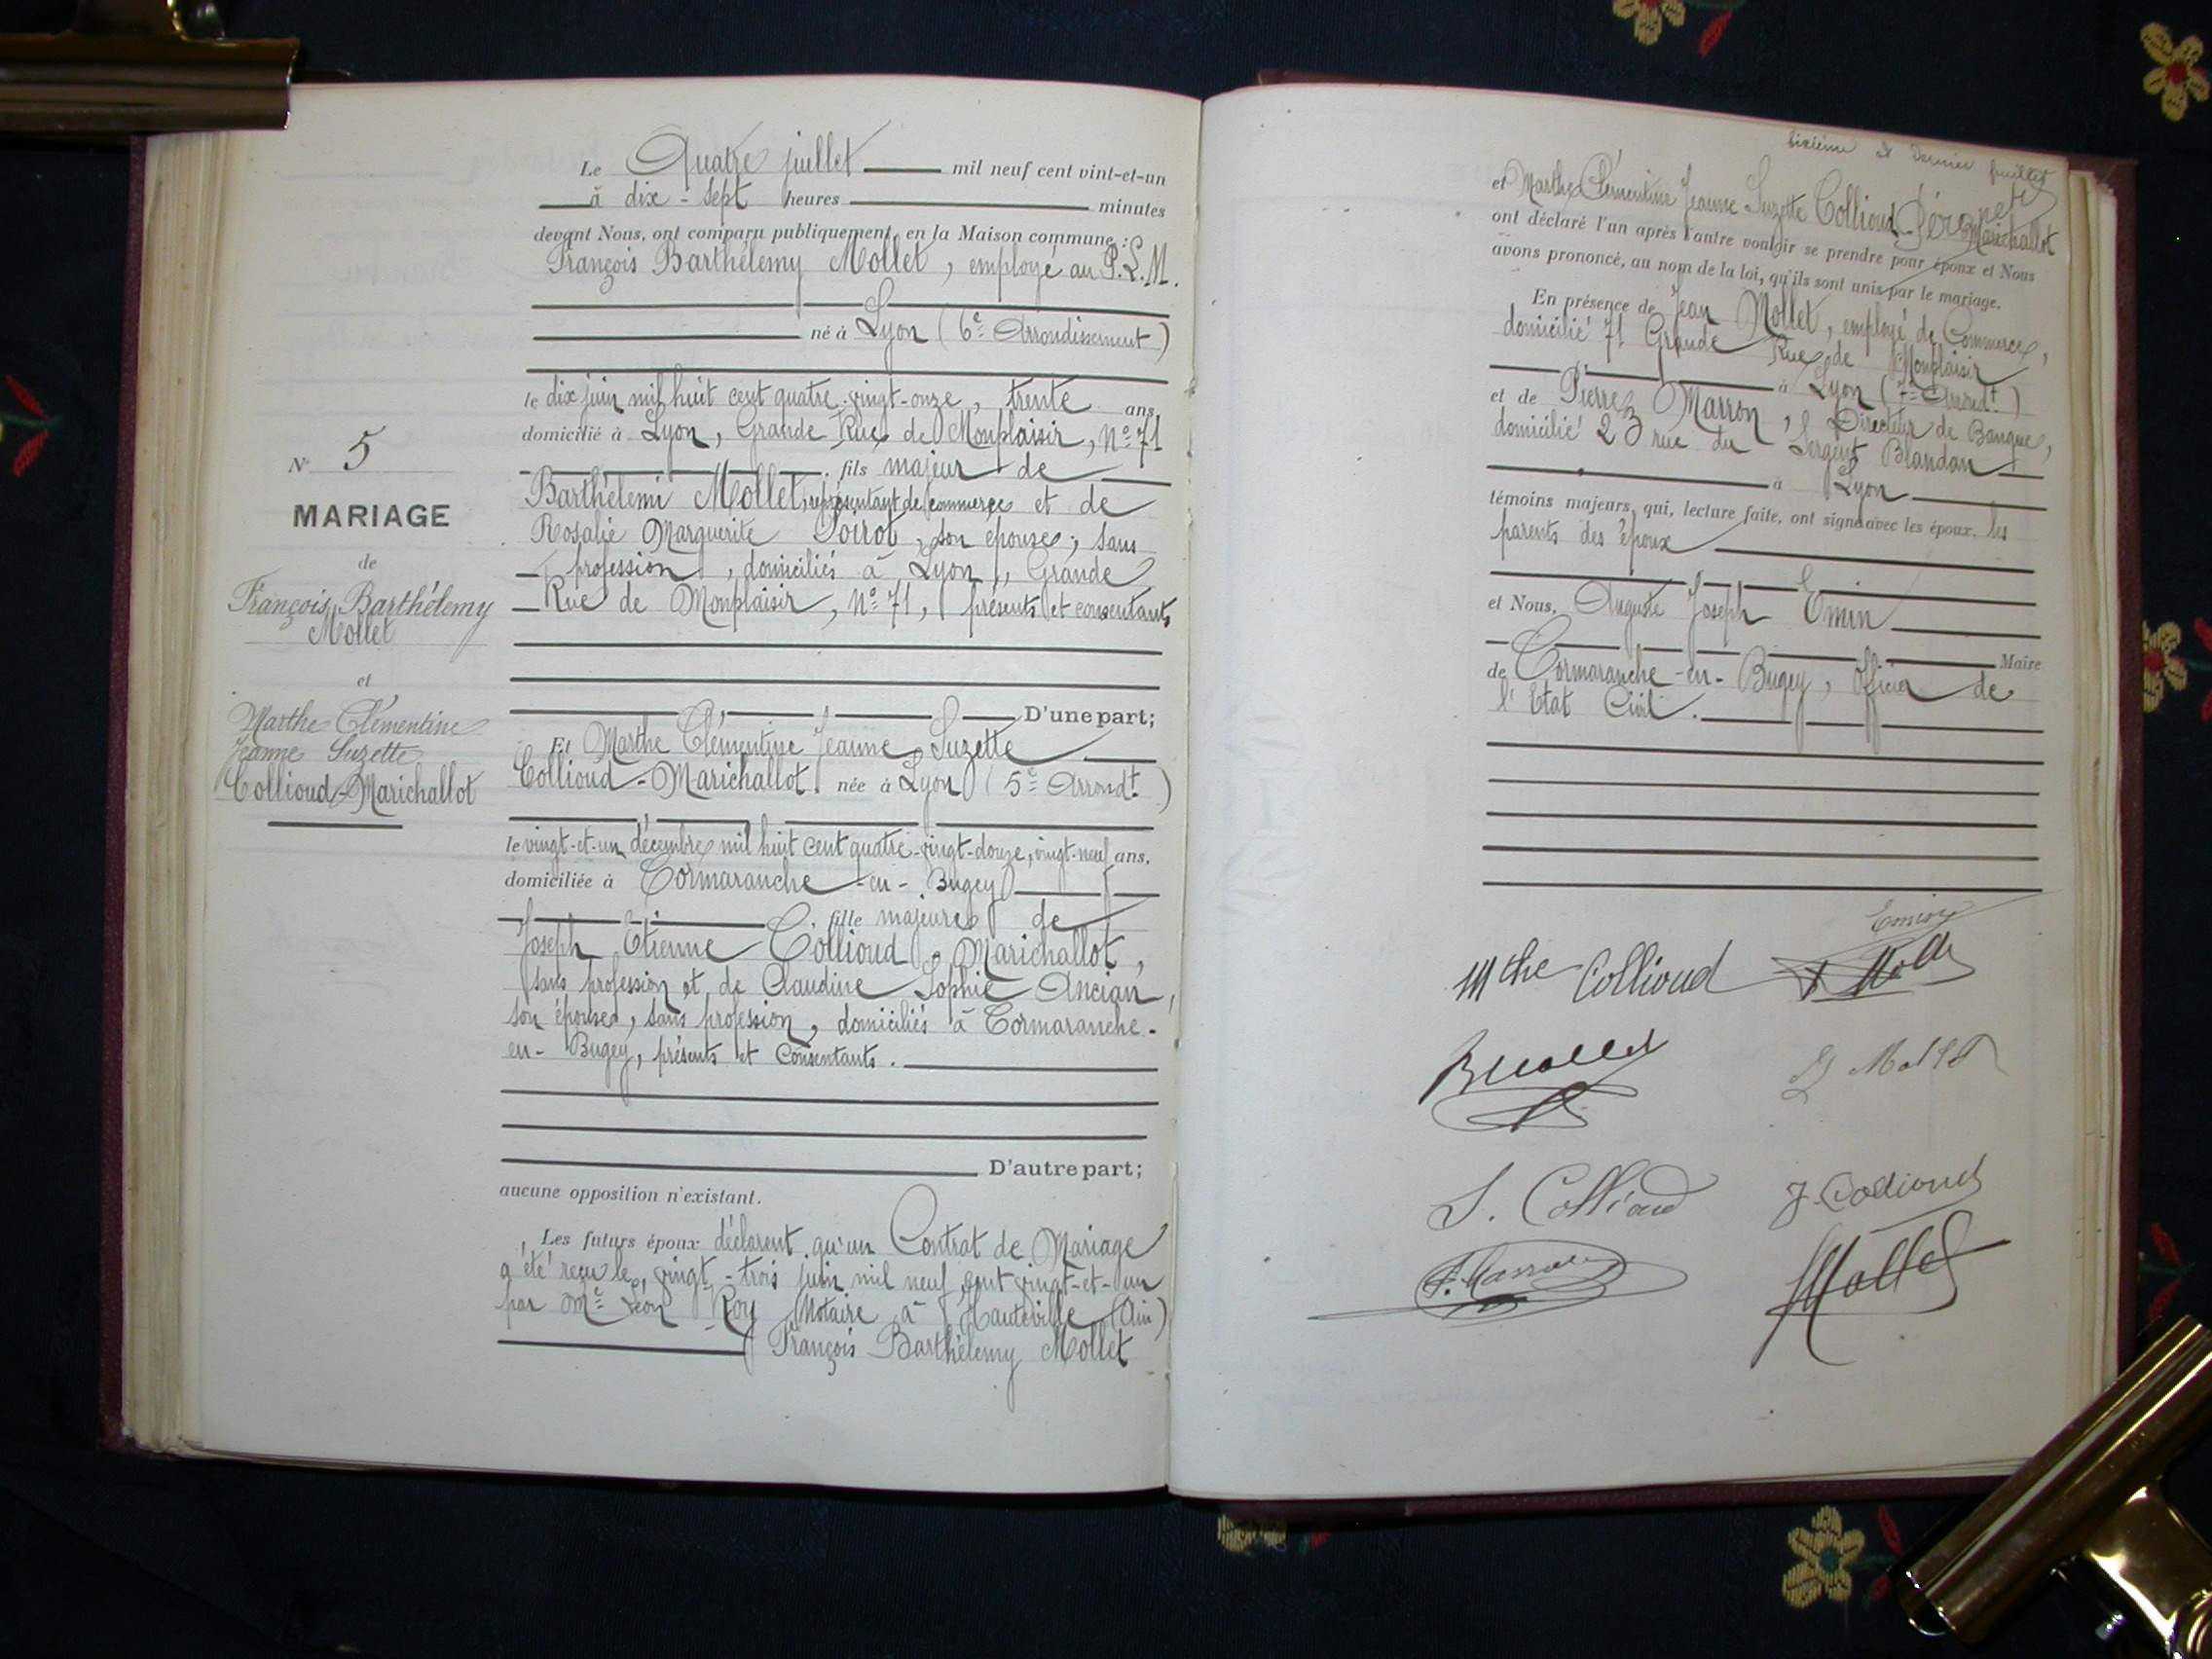 Le Quatre juillet mil neuf cent vint-et-un
à dix-sept heures minutes
devant Nous, ont comparu publiquement, en la Maison commune :
François Barthélemy Mollet, employé au P.L.M.
né à Lyon (6e Arrondissement)
le dix juin mil huit cent quatre-vingt-onze, trente ans,
domicilié à Lyon, Grande Rue de Monplaisir, No 71
fils majeur de
Barthélemi Mollet, représentant de commerce et de
Rosalie Marguerite Poirrot, son épouse, sans
profession, domiciliés à Lyon, Grande
Rue de Monplaisir, No 71, présents et consentants
D'une part;
Et Marthe Clémentine Jeanne Suzette
Collioud-Marichallot née à Lyon (5e Arrondt)
le vingt-et-un décembre mil huit cent quatre-vingt-douze, vingt-neuf ans,
domiciliée à Cormaranche-en-Bugey
fille majeure de
Joseph Etienne Collioud-Marichallot,
sans profession et de Claudine Sophie Ancian,
son épouse, sans profession, domiciliés à Cormaranche-
en-Bugey, présents et consentants.
D'autre part;
aucune opposition n'existant.
Les futurs époux déclarent qu'un Contrat de Mariage
a été reçu le vingt-trois juin mil neuf cent vingt-et-un
par Me Léon Roy Notaire à Hauteville (Ain)
François Barthélemy Mollet
No 5
MARIAGE
de
François Barthélemy
Mollet
et
Marthe Clémentine
Jeanne Suzette
Collioud-Marichallot
sixième et dernier feuillet
et Marthe Clémentine Jeanne Suzette Collioud-Marichallot
ont déclaré l'un après l'autre vouloir se prendre pour époux et Nous
avons prononcé, au nom de la loi, qu'ils sont unis par le mariage.
En présence de Jean Mollet, employé de Commerce,
domicilié 71 Grande Rue de Monplaisir
à Lyon (7e Arrondt)
et de Pierre Marron, Directeur de Banque,
domicilié 23 rue du Sergent Blandan
à Lyon
témoins majeurs, qui, lecture faite, ont signé avec les époux, les
parents des époux
et Nous, Auguste Joseph Emin
Maire
de Cormaranche-en-Bugey, Officier de
l'Etat Civil.
Emin
Mthe Collioud
B Mollet
S. Collioud
J. Collioud
P. Marron
J Mollet